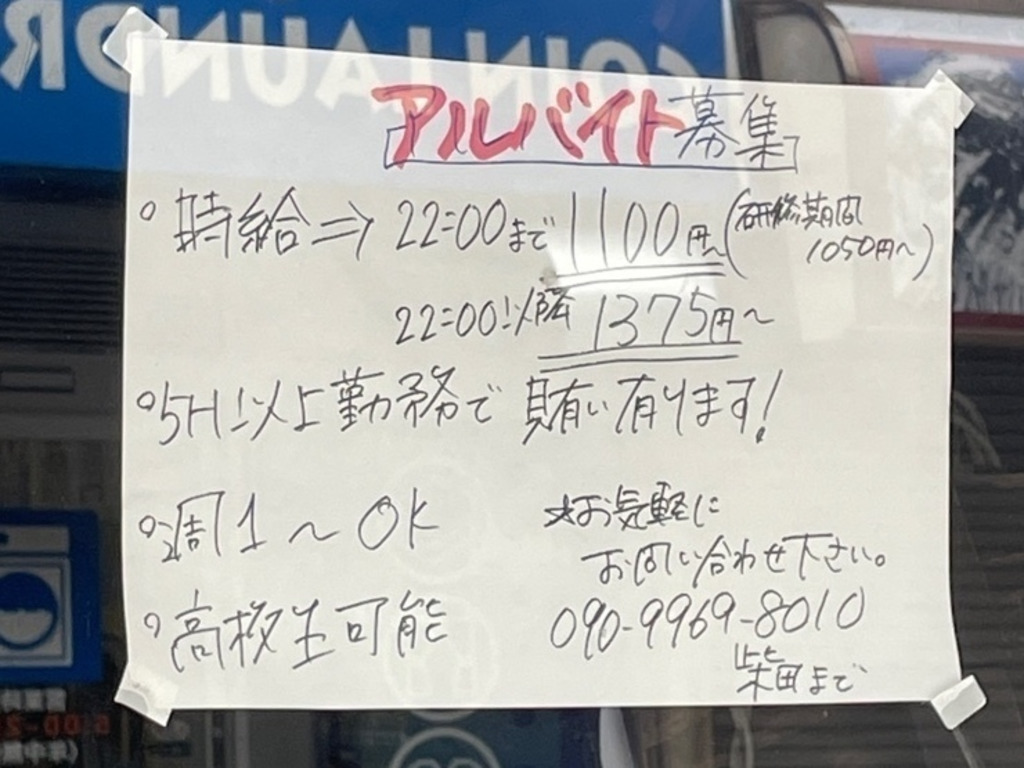 COIN LAUNDR
アルバイト募集
○時給⇒22:00まで1100円(研修期間
1050円〜)
22:00以降 1375円〜
○5H以上勤務で 賄い有ります!
○週1〜OK
○高校生可能
☆お気軽に
お問い合わせ下さい。
090-9969-8010
柴田まで